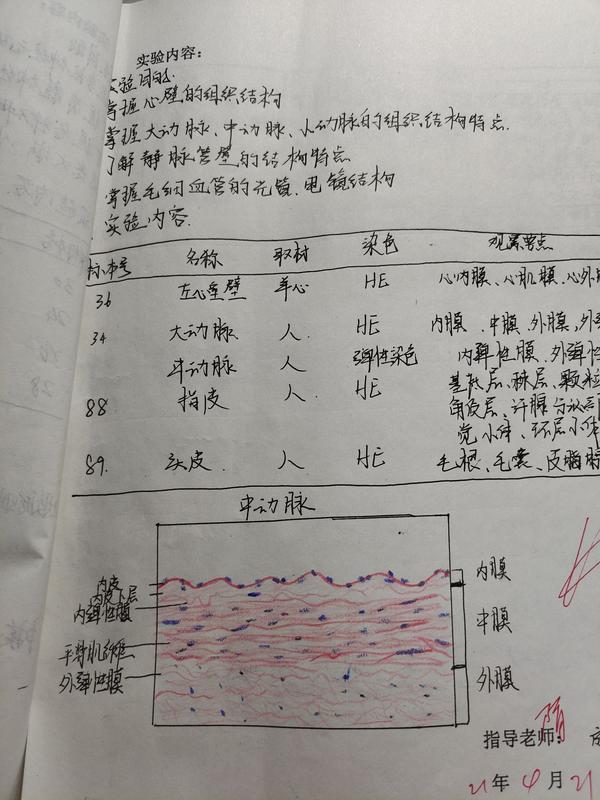 实验内容：
实验目的.
掌握心壁的组织结构
掌握大动脉、中动脉、小动脉的组织结构特点.
了解静脉管壁的结构特点
掌握毛细血管的光镜.电镜结构
实验内容.
标本号 名称 取材 染色 观察要点
36 左心室壁 羊心 HE 心内膜、心肌膜、心外
34 大动脉 人 HE 内膜.中膜.外膜,外
中动脉 人 弹性染色 内弹性膜.外弹性
88 指皮 人 HE 基底层、棘层、颗粒
角质层、汗腺分泌
觉小体、环层小体
89. 头皮. 人 HE 毛根、毛囊、皮脂腺
中动脉
内皮
内皮下层
内弹性膜
平滑肌纤维
外弹性膜
内膜
中膜
外膜
指导老师：
21年4月21